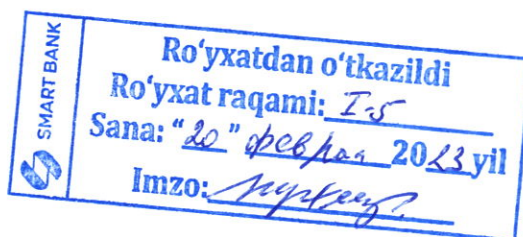 SMART BANK
Ro'yxatdan o'tkazildi
Ro'yxat raqami: I-5
Sana: "20" февраля 2023 yil
Imzo: